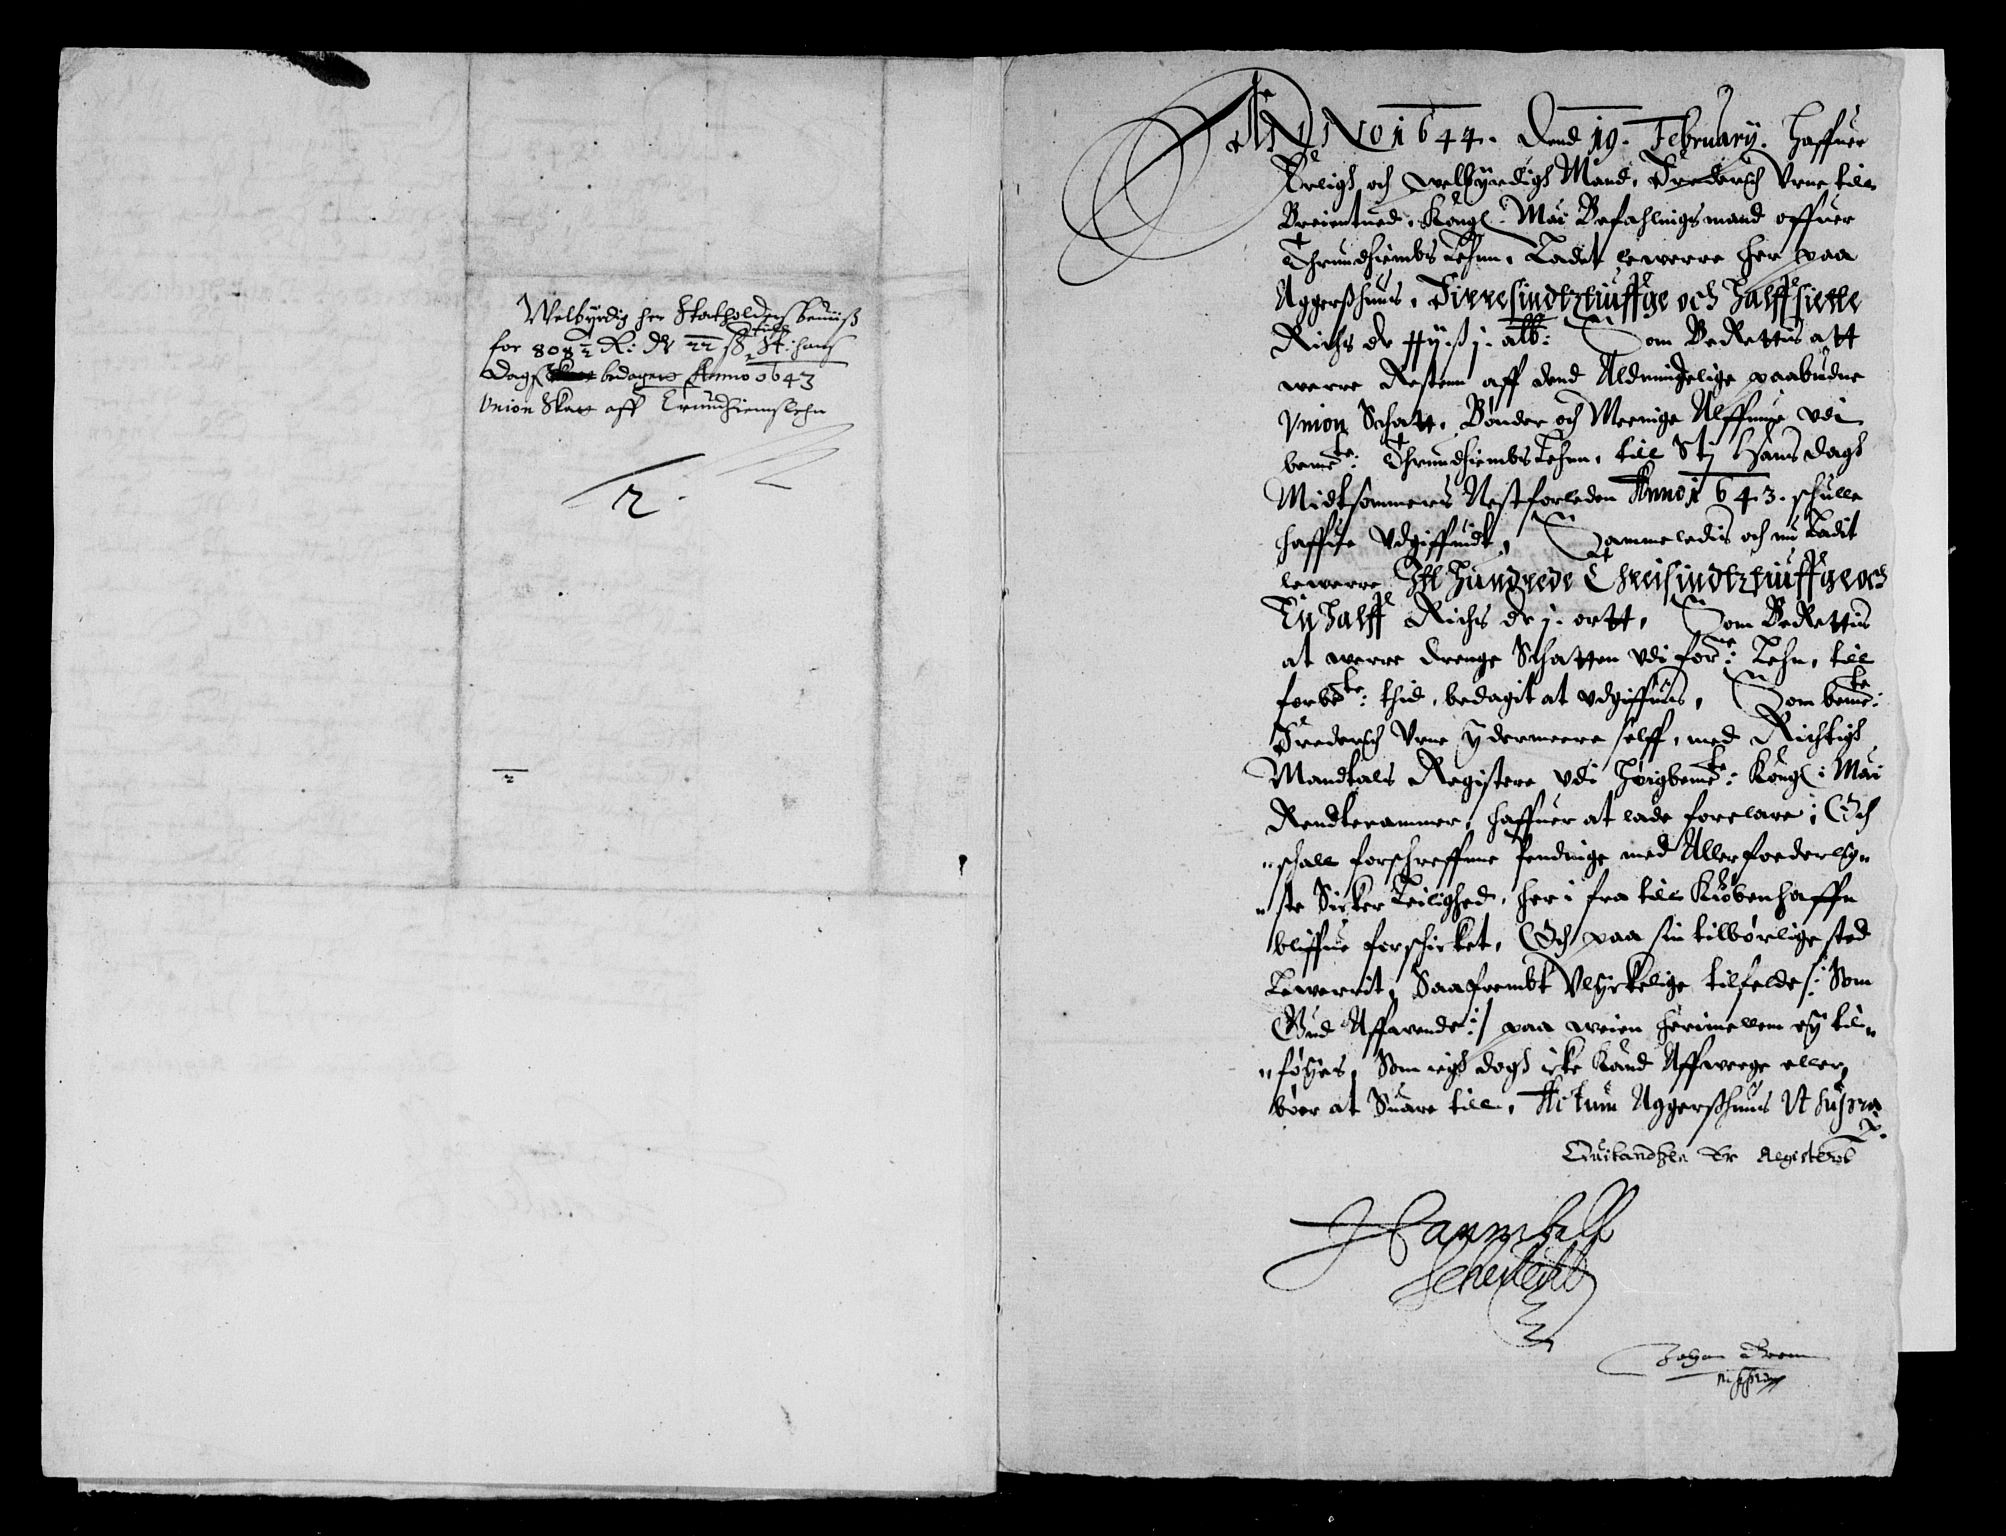 Welbyrdig her Statholders beuiiß
for 808½ R: dr 22 ß till St: Hans
Dag bedagett Anno 1643
Union Skatt aff Trundhiemslehn
2.
2
ANNO 1644. Dend 19. February. Haffuer
Erligh och welbyrdigh Mand, Frederich Vrne till
Breientued, Kongl: Mai: Befahlingsmand offuer
Thrundhiembs Lehnn, Ladet leuerre her paa
Aggerßhuus, Firresindtztiuffge och Halffsiette
Richs dr ij ß j. alb: Som Berettis att
werre Restenn aff dend Aldmindelige paabudne
Vnion Schatt, Bønder och Meenige Alffmue vdi
bemte: Thrundhiembs Lehnn, till Stj Hans dagh
Midtsommers Nestforleden Anno 1643. schulle
haffue vdgiffuidt, Sammeledis och nu Ladit
leuerre Siu Hundrede Threisindtztiuffge och
En Halff Richs dr j. ortt, Som Berettis
at werre drenge Schatten vdi forne: Lehn, till
forbte: thid, bedagit at vdgiffuis, Som bemte:
Frederich Vrne ydermeere selff, med Richtigh
Mandtals Registere vdi Høigbemte: Kongl: Mai
Rendtecammer, haffuer at lade forclare; Och
schall forschreffne pendinge med Allerfoederlig„
„ste Sicker Leilighed, her i fra till Kiøbenhaffn
bliffue forschicket, Och paa sin tilbørlige sted
Leuerrit, Saafrembt Vlyckelige tilfelde /: Som
Gud Affwende :/ paa weien herimellem ey til„
„føyes, Som iegh dogh icke kand Affwerge eller
bøer at Suare till, Actum Aggerßhuus Vt supra
Quitandtzen er Registerit
H Sannibell
Sehested
Johan
mppria